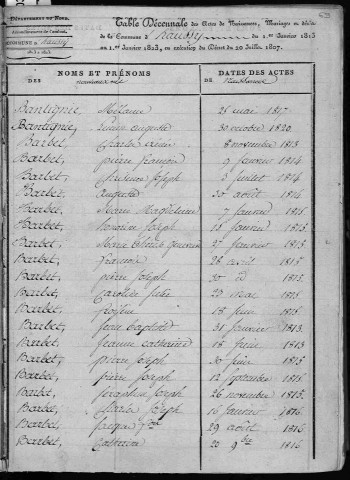 Département du Nord.
COMMUNE D Haussy
Table Décennale des Actes de Naissances, Mariages et décès
de la Commune d Haussy du 1.er Janvier 1813
au 1.er Janvier 1823, en exécution du Décret du 20 Juillet 1807.
NOMS ET PRÉNOMS
DES
DATES DES ACTES
DE
Bantignie, Mélanie 25 mai 1817.
Bantignie, auguste 30 octobre 1820.
Barbet, Charles 8 novembre 1813
Barbet, pierre françois 9 janvier 1814
Barbet, Joseph 3 juillet 1814
Barbet, auguste 30 août 1814
Barbet, Marie Magdeleine 7 janvier 1815.
Barbet, Joseph 18 janvier 1815.
Barbet, Marie 27 janvier 1815.
Barbet, françois 28 avril 1815.
Barbet, pierre Joseph 30 d 1815.
Barbet, Caroline 23 mai 1815.
Barbet, 18 juin 1815.
Barbet, Jean baptiste 31 janvier 1813.
Barbet, jeanne catherine 18 juin 1813.
Barbet, pierre Joseph 30 juin 1815.
Barbet, pierre Joseph 12 septembre 1815.
Barbet, Joseph 26 novembre 1815.
Barbet, Charles Joseph 16 janvier 1816.
Barbet, 29 août 1816
Barbet, Catherine 23 9bre 1816.